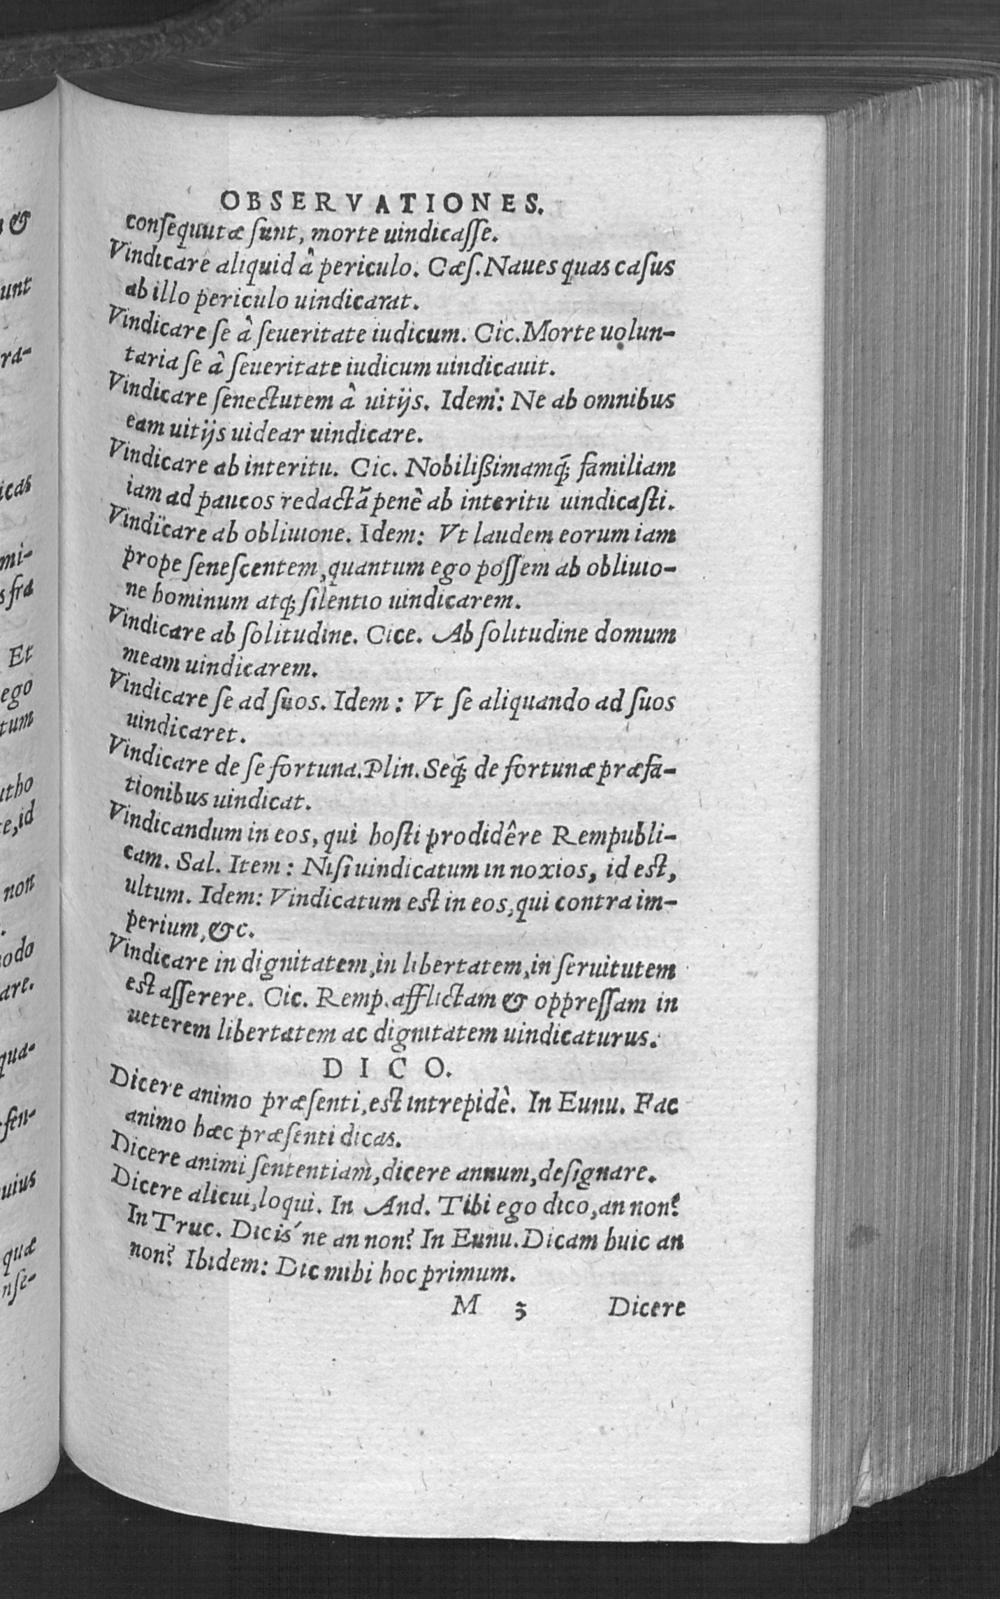 OBSERVATIONES.
consequutæ sunt, morte uindicasse.
Vindicare aliquid â periculo. Cæs. Naues quas casus
ab illo periculo uindicarat.
Vindicare se â seueritate iudicum. Cic. Morte uolun-
taria se â seueritate iudicum uindicauit.
Vindicare senectutem â uitijs. Idem: Ne ab omnibus
eam uitijs uidear uindicare.
Vindicare ab interitu. Cic. Nobilißimamq; familiam
iam ad paucos redactã penè ab interitu uindicasti.
Vindicare ab obliuione. Idem: Vt laudem eorum iam
prope senescentem, quantum ego possem ab obliuio-
ne hominum atq; silentio uindicarem.
Vindicare ab solitudine. Cice. Ab solitudine domum
meam uindicarem.
Vindicare se ad suos. Idem: Vt se aliquando ad suos
uindicaret.
Vindicare de se fortuna. Plin. Seq; de fortunæ præfa-
tionibus uindicat.
Vindicandum in eos, qui hosti prodidêre Rempubli-
cam. Sal. Item: Nisi uindicatum in noxios, id est,
ultum. Idem: Vindicatum est in eos, qui contra im-
perium, &c.
Vindicare in dignitatem, in libertatem, in seruitutem
est asserere. Cic. Remp. afflictam & oppressam in
ueterem libertatem ac dignitatem uindicaturus.
DICO.
Dicere animo præsenti, est intrepidè. In Eunu. Fac
animo hæc præsenti dicas.
Dicere animi sententiam, dicere annum, designare.
Dicere alicui, loqui. In And. Tibi ego dico, an non?
In Truc. Dicis´ne an non? In Eunu. Dicam huic an
non? Ibidem: Dic mihi hoc primum.
M 3 Dicere